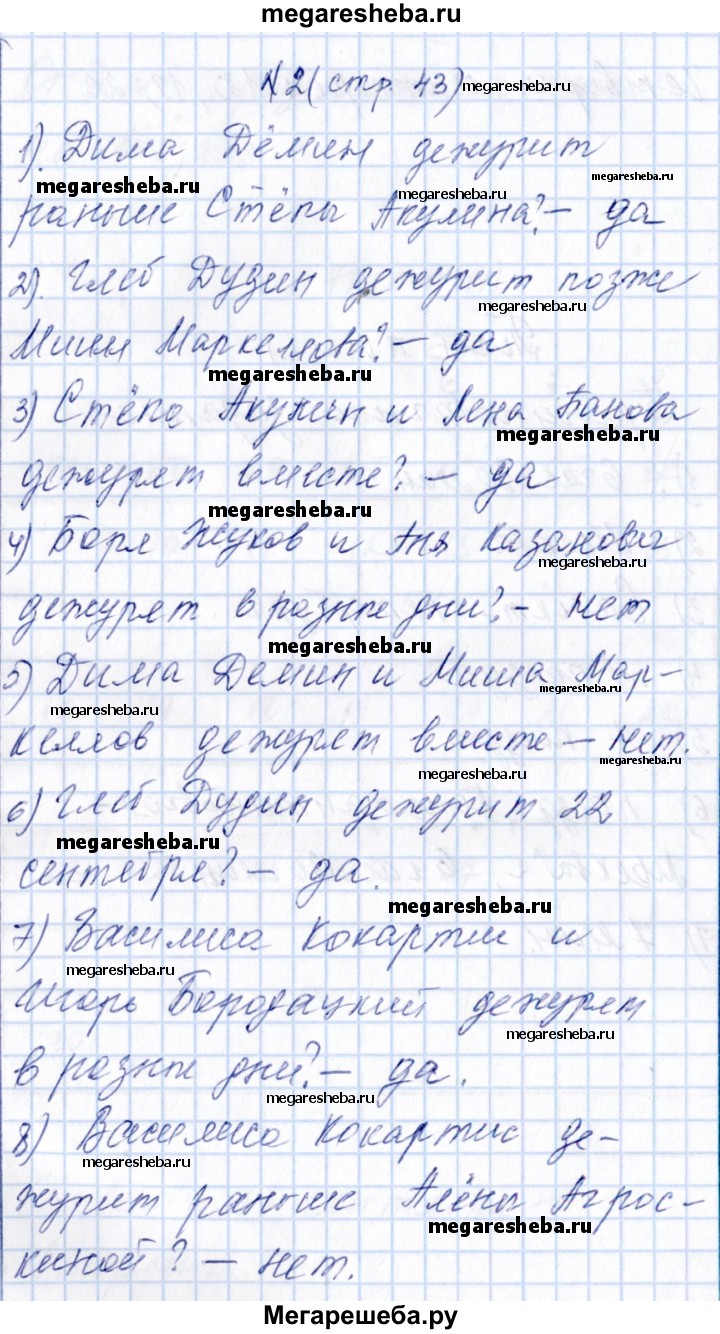 megaresheba.ru
№2 (стр. 43) megaresheba.ru
1). Дима Дёмин дежурит
megaresheba.ru megaresheba.ru megaresheba.ru
раньше Стёпы Акулина? – да
2). Глеб Дудин дежурит позже
megaresheba.ru
Миши Маркеллова? – да
megaresheba.ru
3) Стёпа Акулин и Лена Панова
megaresheba.ru
дежурят вместе? – да
megaresheba.ru
4) Боря Жуков и Аня Казанович
megaresheba.ru
дежурят в разные дни? – нет
megaresheba.ru
5) Дима Демин и Миша Мар-
megaresheba.ru megaresheba.ru
келлов дежурят вместе – нет.
megaresheba.ru megaresheba.ru
6) Глеб Дудин дежурит 22
megaresheba.ru
сентября? – да.
megaresheba.ru
7) Василиса Кокартис и
megaresheba.ru
Игорь Бородацкий дежурят
megaresheba.ru
в разные дни? – да.
megaresheba.ru
8) Василиса Кокартис де-
megaresheba.ru
журит раньше Алёны Агрос-
megaresheba.ru
киной? – нет.
Мегарешеба.ру